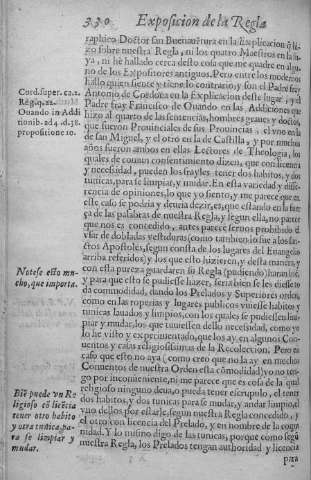 330 Exposicion de la Regla
raphico Doctor san Buenauētura en la Explicacion q̃ hi-
zo sobre nuestra Regla, ni los quatro Maestros en la su-
ya, ni he hallado cerca desto cosa que me quadre en algu-
no de los Expositores antiguos. Pero entre los modernos
hallo quien siente y tiene lo contrario, y son el Padre fray
Antonio de Cordoua en la Explicacion deste lugar, y el
Padre fray Francisco de Ouando en las Addiciones que
hizo al quarto de las sentencias, hombres graues y doctos,
que fueron Prouinciales de sus Prouincias, el vno en la
de san Miguel, y el otro en la de Castilla, y por muchos
años fueron ambos en ellas Lectores de Theologia, los
quales de comun consentimiento dizen, que con licencia
y necessidad, pueden los frayles tener dos habitos, y dos
tunicas, para se limpiar, y mudar. En esta variedad y diffe-
rencia de opiniones, lo que yo siento, y me parece que en
este caso se podria y deuria dezir, es, que estando en la fuer
ça de las palabras de nuestra Regla, y segun ella, no parece
que nos es concedido, antes parece sernos prohibido el
vsar de dobladas vestiduras (como tambien lo fue a los san-
ctos Apostoles, segun consta de los lugares del Euangelio
arriba referidos) y los que esto hizieren, y desta manera y
con esta pureza guardaren su Regla (pudiendo) haran biē,
y para que esto se pudiesse hazer, seria bien se les diesse to
da commodidad, dando los Prelados y Superiores orden,
como en las roperias y lugares publicos vuiesse habitos y
tunicas lauados y limpios, con los quales se pudiessen lim-
piar y mudar, los que tuuiessen dello necessidad, como yo
lo he visto y experimentado, que los ay en algunos Con-
uentos y casas religiosissimas de la Recolleccion. Pero en
caso que esto no aya (como creo que no la ay en muchos
Conuentos de nuestra Orden esta cõmodidad) yo no ten-
go por inconueniente, ni me parece que es cosa de la qual
religioso ninguno deua, o pueda tener escrupulo, el tener
dos habitos, y dos tunicas para se mudar, y andar limpio, el
vno dellos por estarle, segun nuestra Regla concedido, y
el otro con licencia del Prelado, y en nombre de la comu-
nidad. Y lo mismo digo de las tunicas, porque como segũ
nuestra Regla, los Prelados tengan authoridad y licencia
para
Cord. super. ca. 2.
Reg. q. 12.
Ouando in Addi
tionib. ad 4. d. 38.
propositione 10.
Notese esto mu-
cho, que importa.
Biē puede vn Re
ligioso cō licēcia
tener otro habito
y otra tunica pa-
ra se limpiar y
mudar.